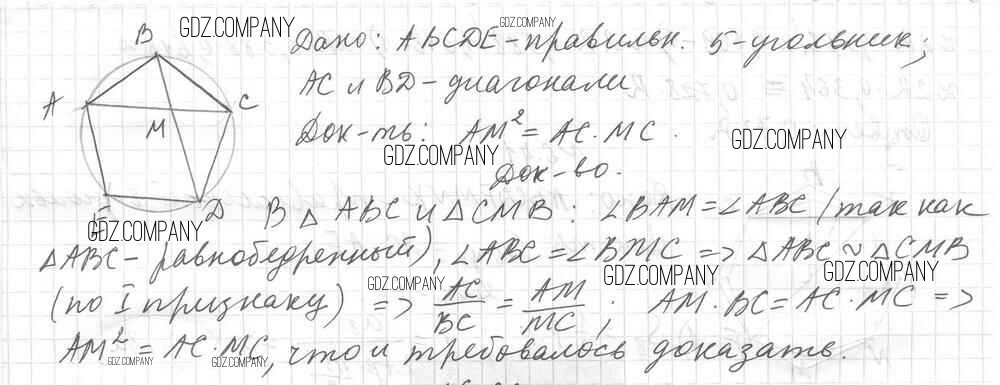 GDZ.COMPANY
GDZ.COMPANY
Дано: ABCDE – правильн. 5-угольник;
B
AC и BD – диагонали
A
C
M
Док-ть: AM² = AC · MC.
GDZ.COMPANY
GDZ.COMPANY
Док-во.
E
D
В △ ABC и △ CMB: ∠BAM = ∠ABC (так как
GDZ.COMPANY
△ABC – равнобедренный), ∠ABC = ∠BMC => △ABC ≈ △CMB
GDZ.COMPANY
GDZ.COMPANY
GDZ.COMPANY
(по I признаку) => AC/BC = AM/MC; AM · BC = AC · MC =>
AM² = AC · MC, что и требовалось доказать.
GDZ.COMPANY
GDZ.COMPANY